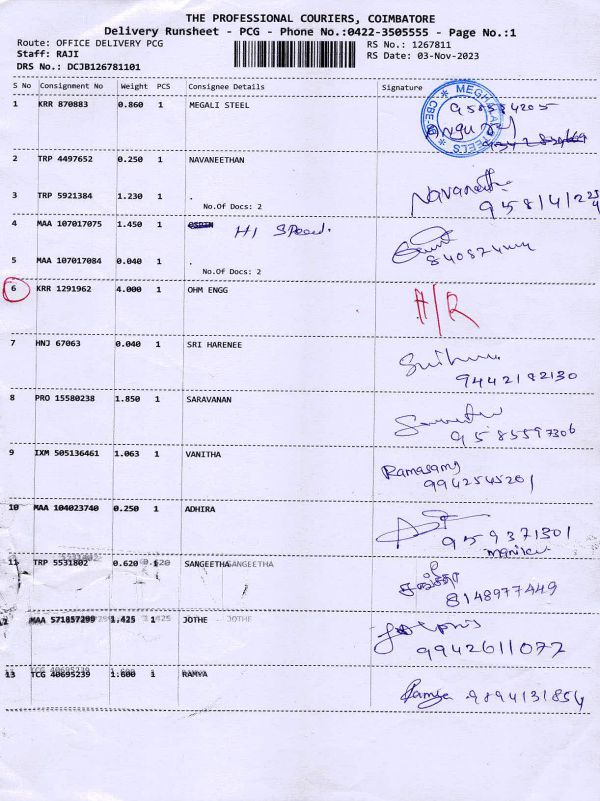 THE PROFESSIONAL COURIERS, COIMBATORE
Delivery Runsheet - PCG - Phone No.:0422-3505555 - Page No.:1
Route: OFFICE DELIVERY PCG
RS No.: 1267811
Staff: RAJI
RS Date: 03-Nov-2023
DRS No.: DCJB126781101
S No Consignment No Weight PCS Consignee Details Signature
1 KRR 870883 0.860 1 MEGALI STEEL
2 TRP 4497652 0.250 1 NAVANEETHAN
3 TRP 5921384 1.230 1 .
No.Of Docs: 2
Navaneetha
4 MAA 107017075 1.450 1 HI Speed.
5 MAA 107017084 0.040 1 .
No.Of Docs: 2
6 KRR 1291962 4.000 1 OHM ENGG
H/R
7 HNJ 67063 0.040 1 SRI HARENEE
9442182130
8 PRO 15580238 1.850 1 SARAVANAN
9585597306
9 IXM 505136461 1.063 1 VANITHA
Ramasamy
9942545201
10 MAA 104023740 0.250 1 ADHIRA
959371301
11 TRP 5531802 0.620 1 SANGEETHA
8148977449
12 MAA 571857299 1.425 1 JOTHE
9942611077
13 TCG 40695239 1.600 1 RAMYA
Ramya 9894131854